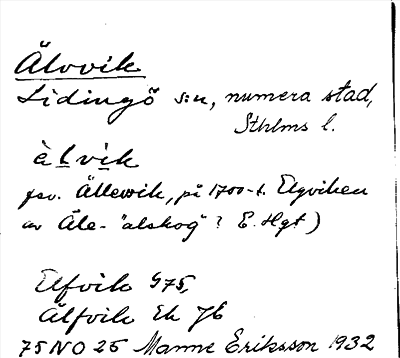 Älvvik
Lidingö s:n, numera stad,
Sthlms l.
è l v i k
fsv. Ällewik, på 1700-t. Elgviken
av Äle- "alskog"? E. Hgt)
Elfvik G75,
Älfvik Ek Jb
75 NO 25 Manne Eriksson 1932